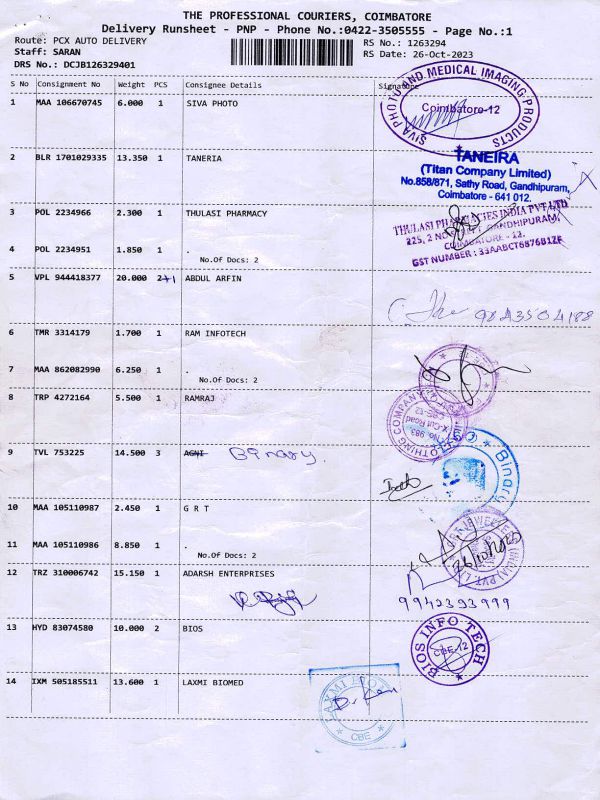 THE PROFESSIONAL COURIERS, COIMBATORE
Delivery Runsheet - PNP - Phone No.:0422-3505555 - Page No.:1
Route: PCX AUTO DELIVERY
RS No.: 1263294
Staff: SARAN
RS Date: 26-Oct-2023
DRS No.: DCJB126329401
S No Consignment No Weight PCS Consignee Details Signature
1 MAA 106670745 6.000 1 SIVA PHOTO
SIVA PHOTO AND MEDICAL IMAGING PRODUCTS
Coimbatore-12
2 BLR 1701029335 13.350 1 TANERIA
TANEIRA
(Titan Company Limited)
No.858/871, Sathy Road, Gandhipuram,
Coimbatore - 641 012.
3 POL 2234966 2.300 1 THULASI PHARMACY
THULASI PHARMACIES INDIA PVT LTD
225, 2 GANDHIPURAM,
COIMBATORE - 12.
GST NUMBER : 33AABCT6876B1ZF
4 POL 2234951 1.850 1 .
No.Of Docs: 2
5 VPL 944418377 20.000 2+1 ABDUL ARFIN
9843504188
6 TMR 3314179 1.700 1 RAM INFOTECH
7 MAA 862082990 6.250 1 .
No.Of Docs: 2
8 TRP 4272164 5.500 1 RAMRAJ
CLOTHING COMPANY
No 983,
X-Cut Road
CBE-12
9 TVL 753225 14.500 3 AGNI Binary.
Binary
10 MAA 105110987 2.450 1 G R T
11 MAA 105110986 8.850 1 .
No.Of Docs: 2
JEWELLERS (INDIA) PVT. LTD
26/10/2023
12 TRZ 310006742 15.150 1 ADARSH ENTERPRISES
9942393999
13 HYD 83074580 10.000 2 BIOS
BIOS INFO TECH
CBE-12
14 IXM 505185511 13.600 1 LAXMI BIOMED
LAXMI
CBE